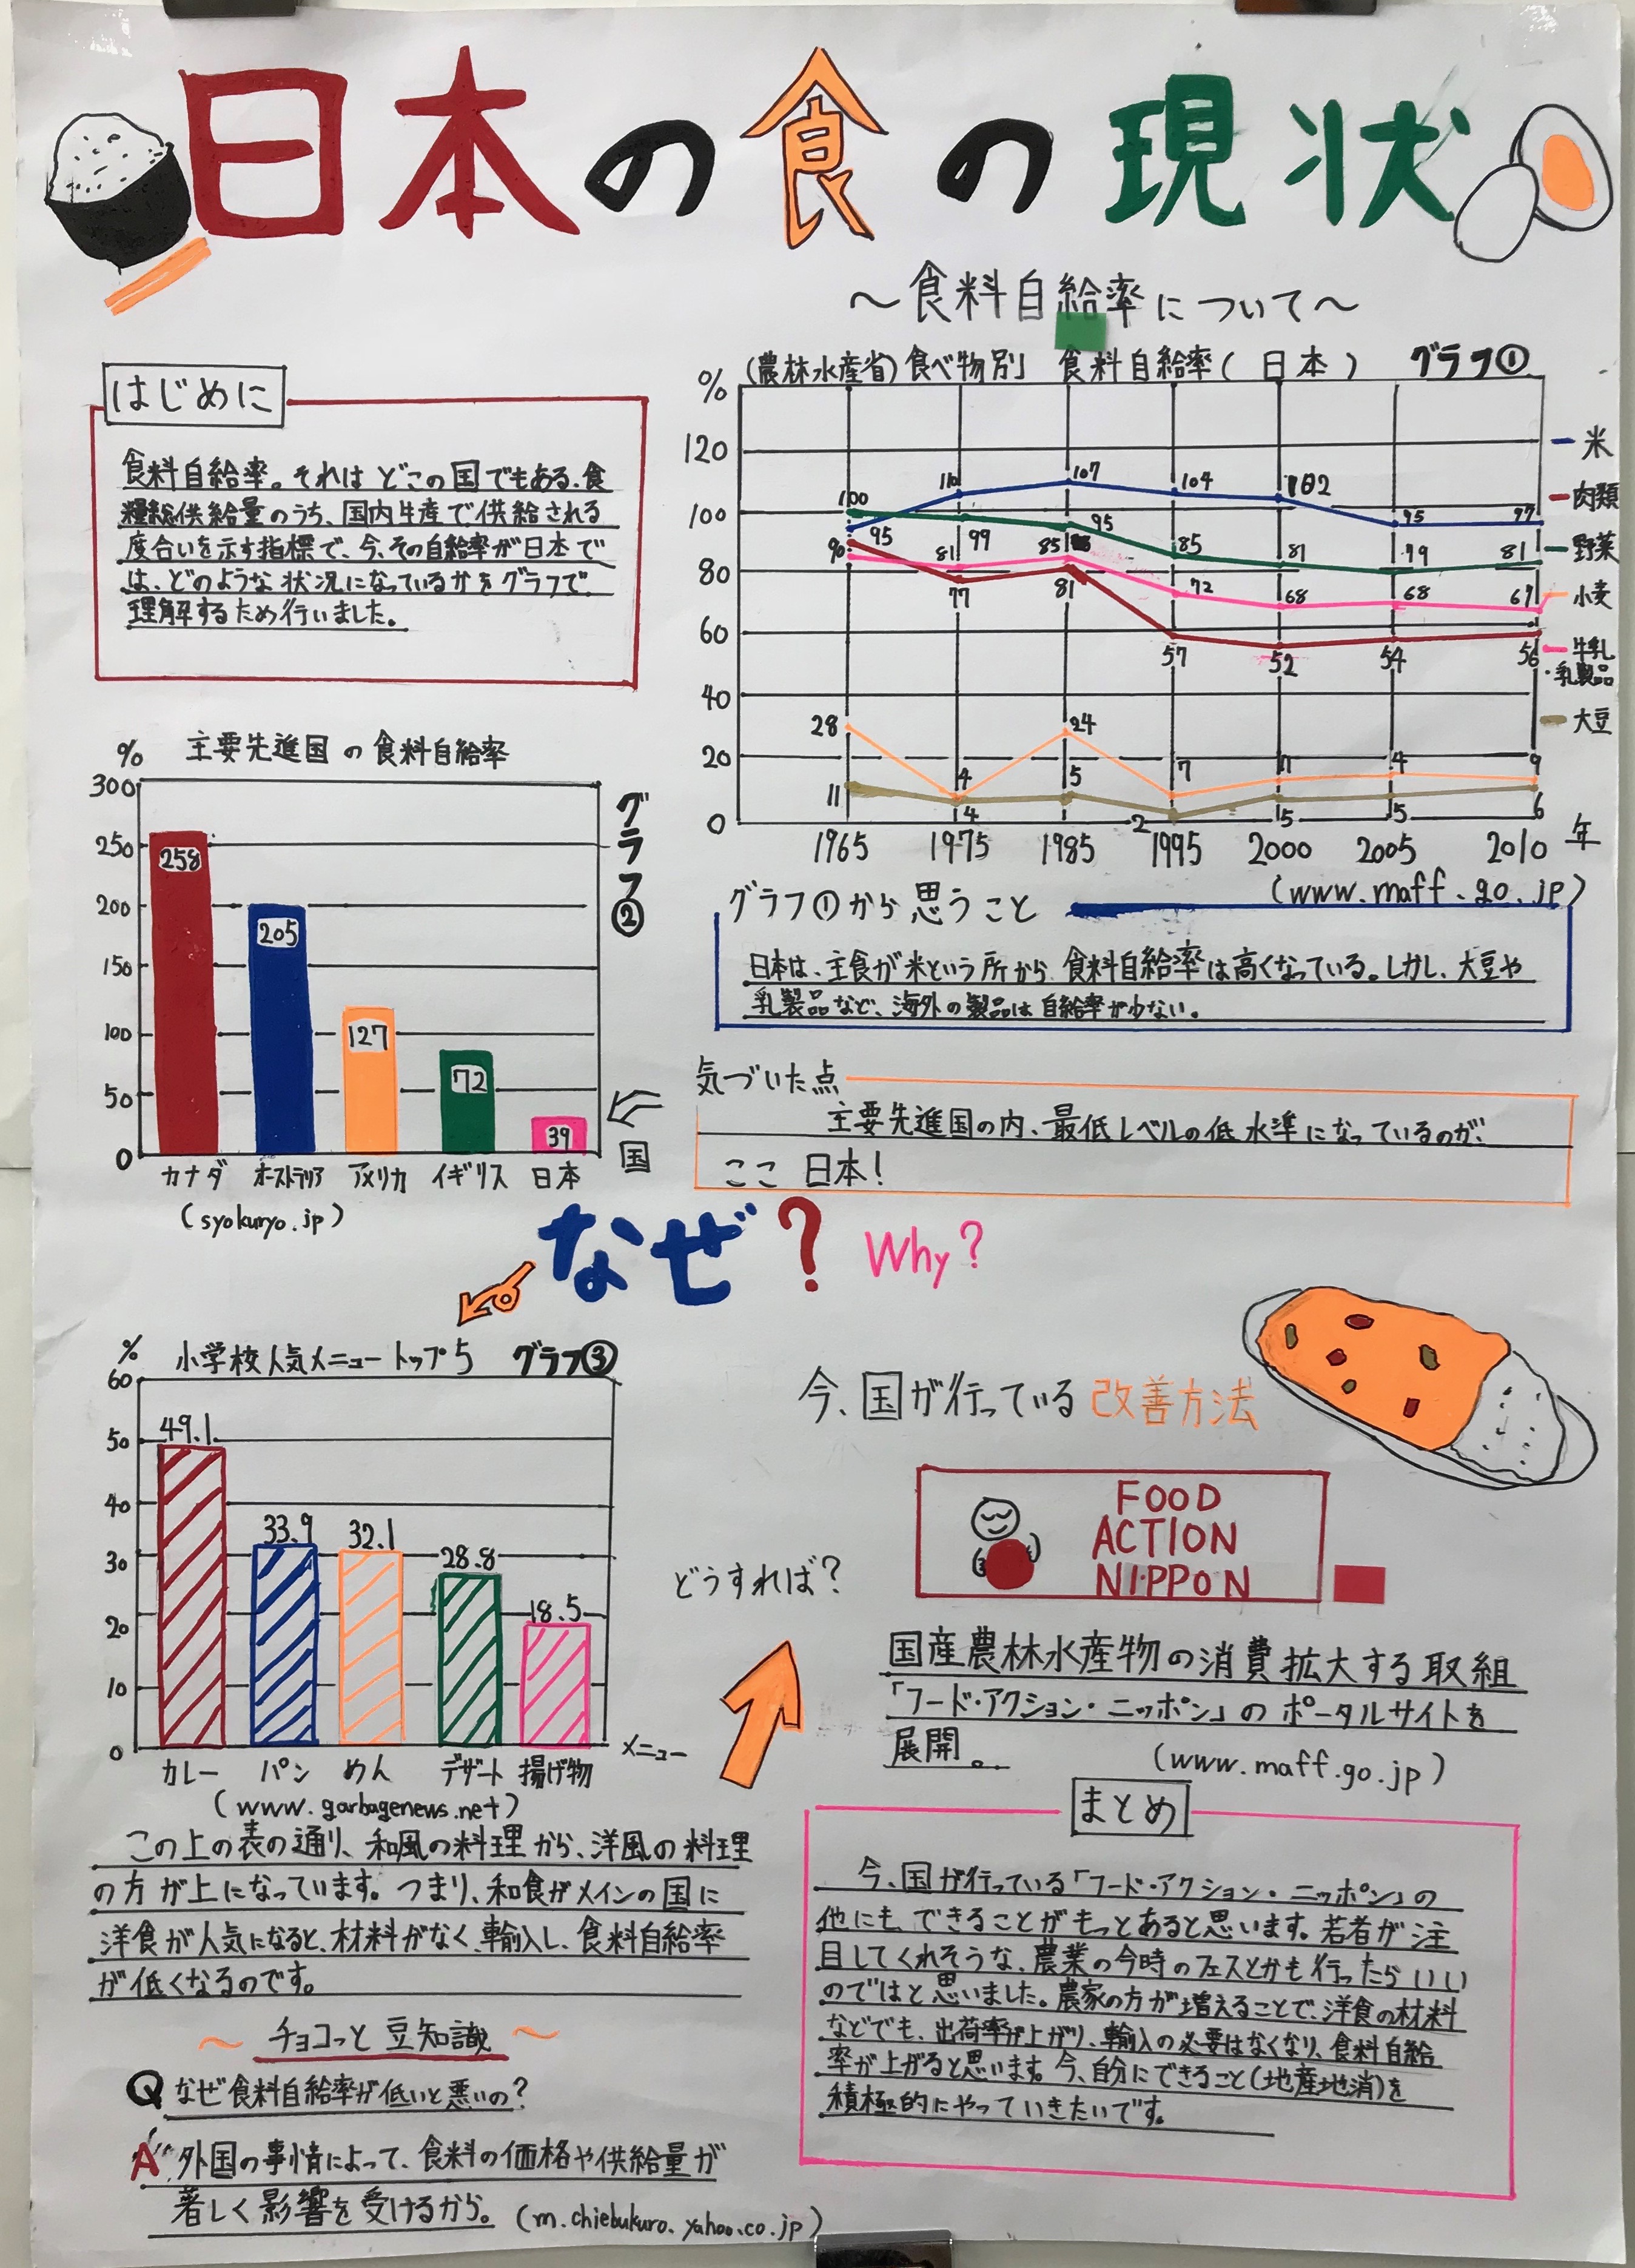 日本の食の現状
～食料自給率について～
はじめに
食料自給率。それはどこの国でもある、食
糧総供給量のうち、国内生産で供給される
度合いを示す指標で、今、その自給率が日本で
は、どのような状況になっているかをグラフで
理解するため行いました。
(農林水産省)食べ物別 食料自給率(日本) グラフ①
%
120
100
80
60
40
20
0
100
110
107
104
102
95
97
95
99
95
85
81
79
81
90
81
85
72
68
68
67
77
81
57
52
54
56
28
4
24
7
4
9
11
4
5
2
5
5
6
1965 1975 1985 1995 2000 2005 2010 年
米
肉類
野菜
小麦
牛乳
・乳製品
大豆
(www.maff.go.jp)
% 主要先進国の食料自給率
グラフ②
300
250
200
150
100
50
0
258
205
127
72
39
カナダ オーストラリア アメリカ イギリス 日本
国
(syokuryo.jp)
グラフ①から思うこと
日本は、主食が米という所から食料自給率は高くなっている。しかし、大豆や
乳製品など、海外の製品は自給率が少ない。
気づいた点
主要先進国の内、最低レベルの低水準になっているのが、
ここ 日本!
なぜ? Why?
% 小学校人気メニュートップ5 グラフ③
60
50
40
30
20
10
0
49.1
33.9
32.1
28.8
18.5
カレー パン めん デザート 揚げ物
メニュー
(www.garbagenews.net)
この上の表の通り、和風の料理から、洋風の料理
の方が上になっています。つまり、和食がメインの国に
洋食が人気になると、材料がなく、輸入し、食料自給率
が低くなるのです。
～ チョコっと豆知識 ～
Q なぜ食料自給率が低いと悪いの?
A 外国の事情によって、食料の価格や供給量が
著しく影響を受けるから。(m.chiebukuro.yahoo.co.jp)
どうすれば?
今、国が行っている改善方法
FOOD
ACTION
NIPPON
国産農林水産物の消費拡大する取組
「フード・アクション・ニッポン」のポータルサイトを
展開。
(www.maff.go.jp)
まとめ
今、国が行っている「フード・アクション・ニッポン」の
他にも、できることがもっとあると思います。若者が注
目してくれそうな、農業の今時のフェスとかも行ったらいい
のではと思いました。農家の方が増えることで、洋食の材料
などでも、出荷率が上がり、輸入の必要はなくなり、食料自給
率が上がると思います。今、自分にできること(地産地消)を
積極的にやっていきたいです。